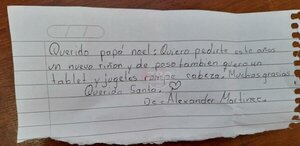 Querido papá noel: Quiero pedirte este años
un nuevo riñon y de paso tambien quiero un
tablet y jugetes rompe cabeza. Muchas gracias
Querido Santa.
De: Alexander Martinez